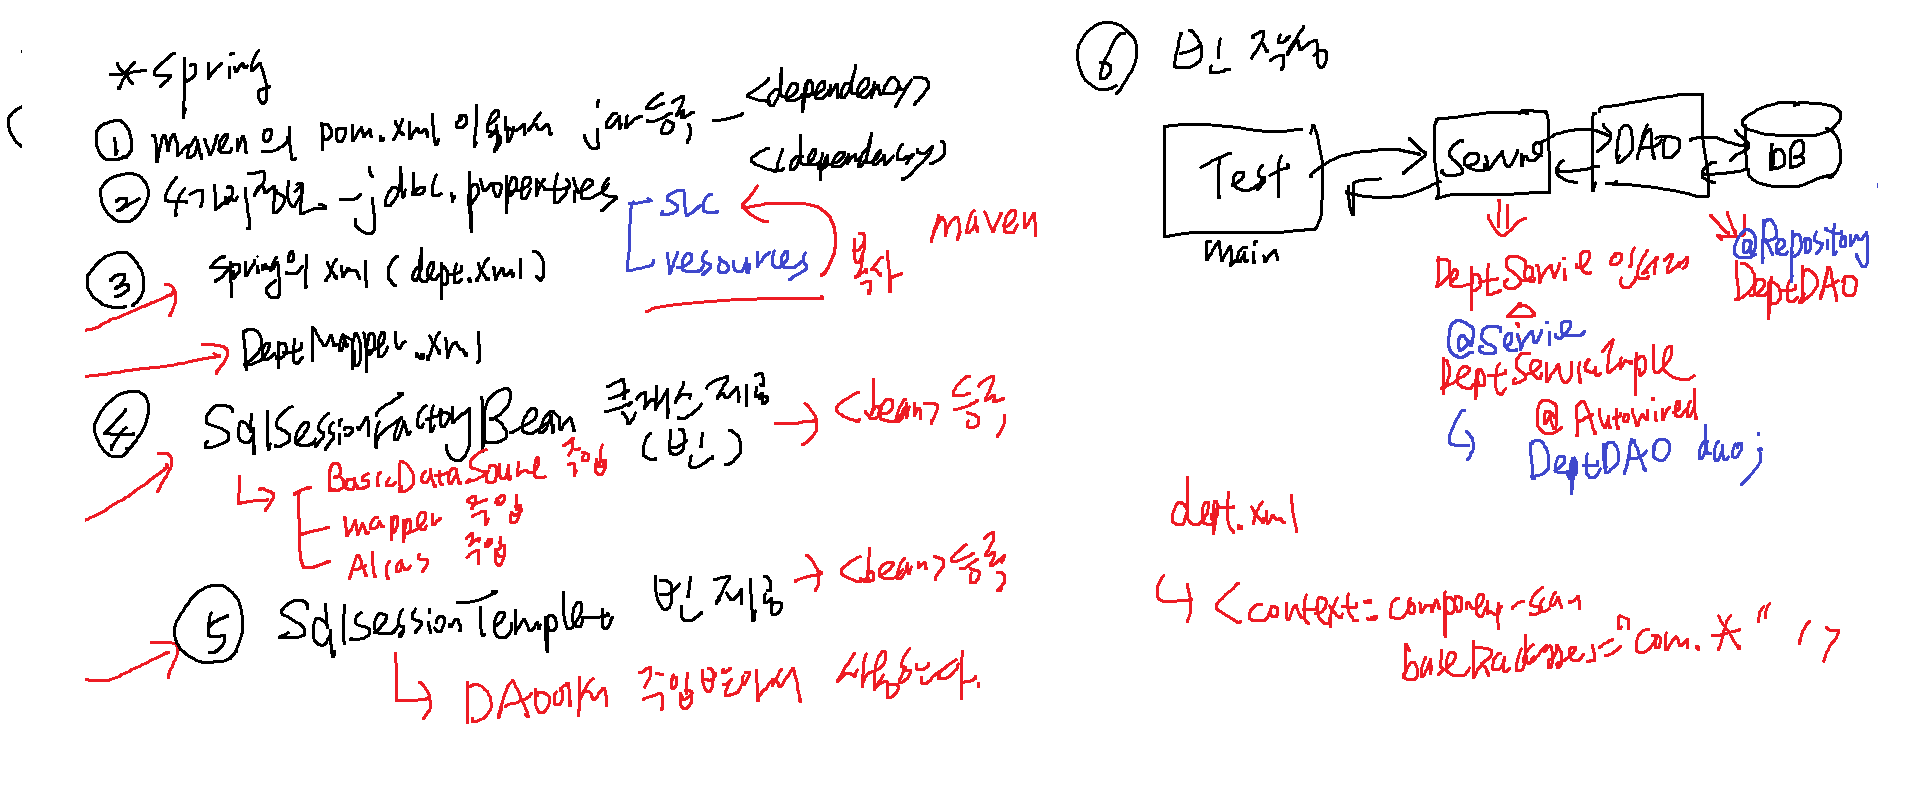 *Spring
① maven의 pom.xml 이용해서 jar등록 - <dependency>
</dependency>
② 4가지정보 - jdbc.properties
src
resources
복사
maven
③ spring의 xml (dept.xml)
DeptMapper.xml
④ SqlSessionFactoryBean 클래스 제공
(빈)
→ <bean> 등록
BasicDataSource 주입
mapper 주입
Alias 주입
⑤ SqlSessionTemplet 빈 제공 → <bean> 등록
DAO에서 주입받아서 사용한다.
⑥ 빈 작성
Test
Service
DAO
DB
main
DeptService
@Service
DeptServiceImple
@Autowired
DeptDAO dao;
@Repository
DeptDAO
dept.xml
<context:component-scan
basePackages="com.*" />